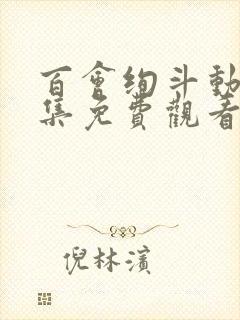 百會绚斗動
集免費觀看
倪林濱